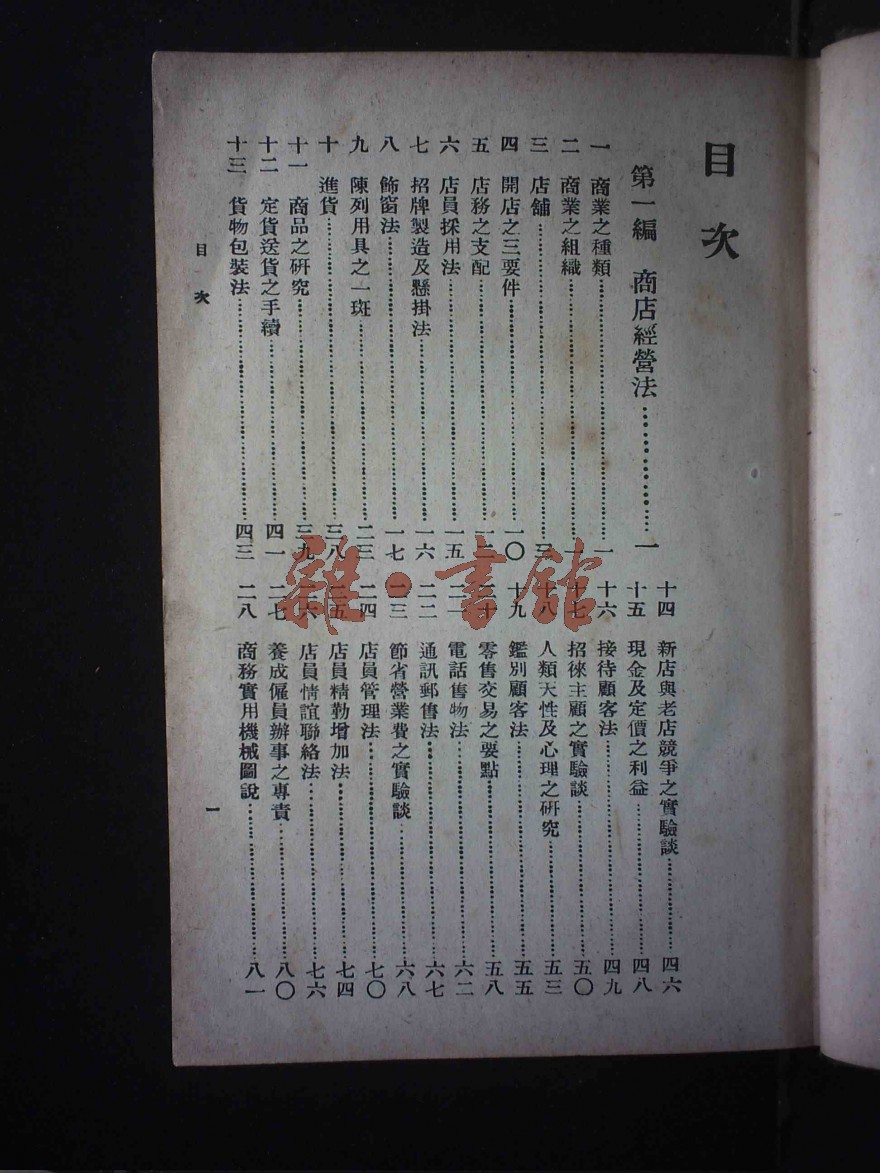 目次
第一編 商店經營法…………一
一 商業之種類…………一
二 商業之組織…………一
三 店舖…………三
四 開店之三要件…………一〇
五 店務之支配…………一二
六 店員採用法…………一五
七 招牌製造及懸掛法…………一六
八 飾窗法…………一七
九 陳列用具之一斑…………二三
十 進貨…………三八
十一 商品之研究…………三九
十二 定貨送貨之手續…………四一
十三 貨物包裝法…………四三
十四 新店與老店競爭之實驗談…………四六
十五 現金及定價之利益…………四八
十六 接待顧客法…………四九
十七 招徠主顧之實驗談…………五〇
十八 人類天性及心理之研究…………五三
十九 鑑別顧客法…………五五
二十 零售交易之要點…………五八
二一 電話售物法…………六二
二二 通訊郵售法…………六七
二三 節省營業費之實驗談…………六八
二四 店員管理法…………七〇
二五 店員精勤增加法…………七四
二六 店員情誼聯絡法…………七六
二七 養成僱員辦事之專責…………八〇
二八 商務實用機械圖說…………八一
目次
一
雜·書館